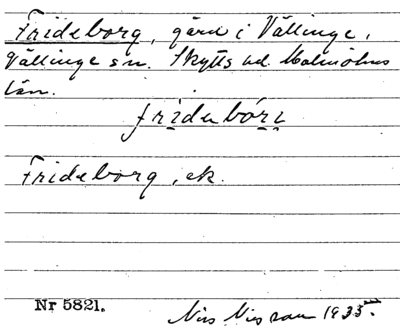 Frideborg, gård i Vällinge,
Vällinge sn. Skytts hd. Malmöhus
län.
fridabórj
Frideborg, ek.
Nr 5821.
Nils Nilsson 1935.